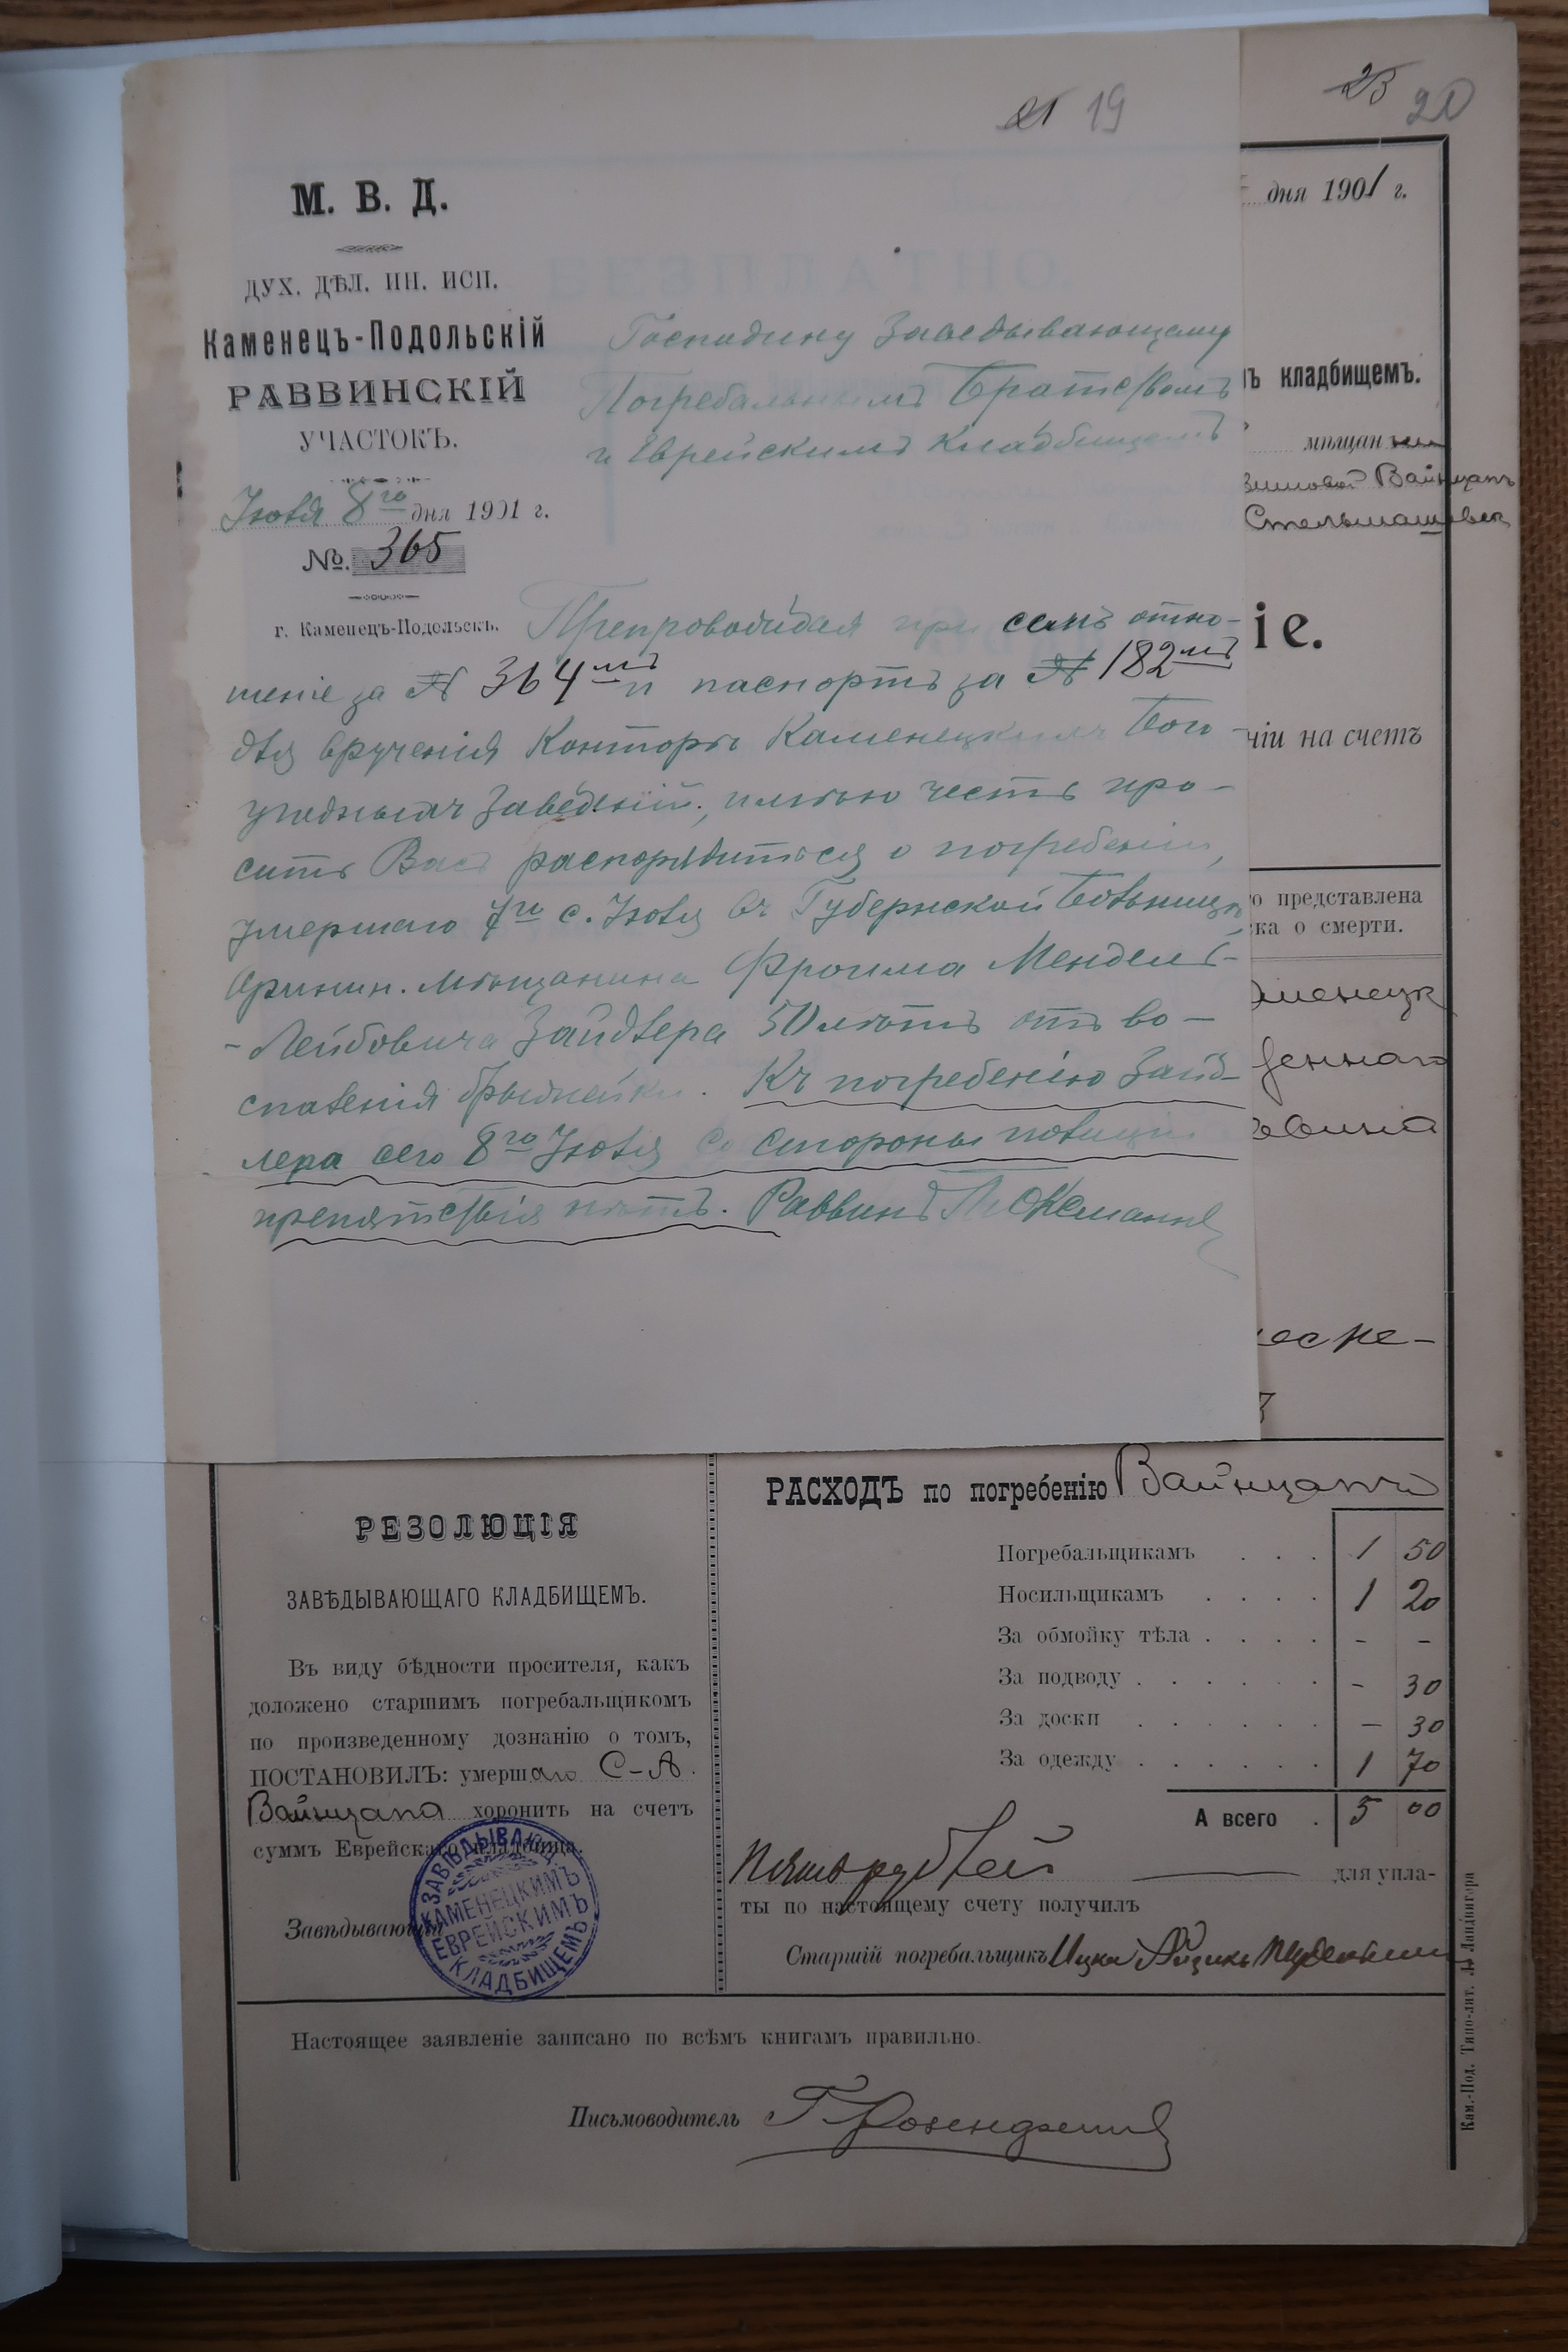 21 19
М. В. Д.
ДУХ. ДѢЛ. ИН. ИСП.
Каменецъ-Подольскій
РАВВИНСКІЙ
УЧАСТОКЪ.
Іюля 8го дня 1901 г.
№. 365
г. Каменецъ-Подольскъ.
Господину Заведывающему
Погребальнымъ Братствомъ
и Еврейскимъ Кладбищемъ
Препровождая при семъ отно-
шеніе за № 364мъ и паспортъ за № 182мъ
для врученія Конторѣ Каменецкихъ Бого-
угодныхъ Заведеній, имѣю честь про-
сить Васъ распорядиться о погребеніи,
умершаго 7го с. Іюля въ Губернской Больницѣ
Оринин. мѣщанина Фроима Мендель-
-Лейбовича Зайдлера 50 лѣтъ отъ во-
спаленія брыжейки. Къ погребенію Зайд-
лера сего 8го Іюля со стороны полиціи
препятствія нѣтъ. Раввинъ
23 20
дня 1901 г.
ъ кладбищемъ.
мѣщан
Вайнцапъ
іе.
ніи на счетъ
о представлена
ка о смерти.
аменецк
деннаго
РЕЗОЛЮЦІЯ
ЗАВѢДЫВАЮЩАГО КЛАДБИЩЕМЪ.
Въ виду бѣдности просителя, какъ
доложено старшимъ погребальщикомъ
по произведенному дознанію о томъ,
ПОСТАНОВИЛЪ: умершаго С-А.
Вайнцапа хоронить на счетъ
суммъ Еврейскаго кладбища.
Завѣдывающій
ЗАВѢДЫВАЮЩ
КАМЕНЕЦКИМЪ
ЕВРЕЙСКИМЪ
КЛАДБИЩЕМЪ
РАСХОДЪ по погребенію Вайнцапъ
Погребальщикамъ . . . 1 50
Носильщикамъ . . . . 1 20
За обмойку тѣла . . . . - -
За подводу . . . . . . - 30
За доски . . . . . . — 30
За одежду . . . . . . 1 70
А всего . 5 00
Пять рублей для упла-
ты по настоящему счету получилъ
Старшій погребальщикъ Ицко Айзикъ
Настоящее заявленіе записано по всѣмъ книгамъ правильно.
Письмоводитель
Кам.-Под. Типо-лит. Л. Ландвигера